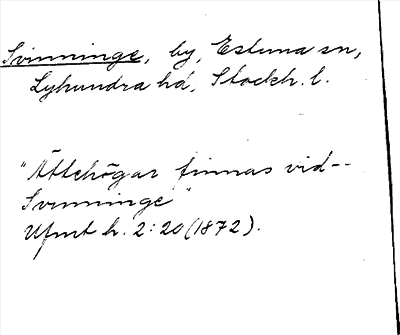 Svinninge, by, Estuna sn,
Lyhundra hd, Stockh. l.
"Ättehögar finnas vid--
Svinninge"
Ufmt h. 2:20 (1872).